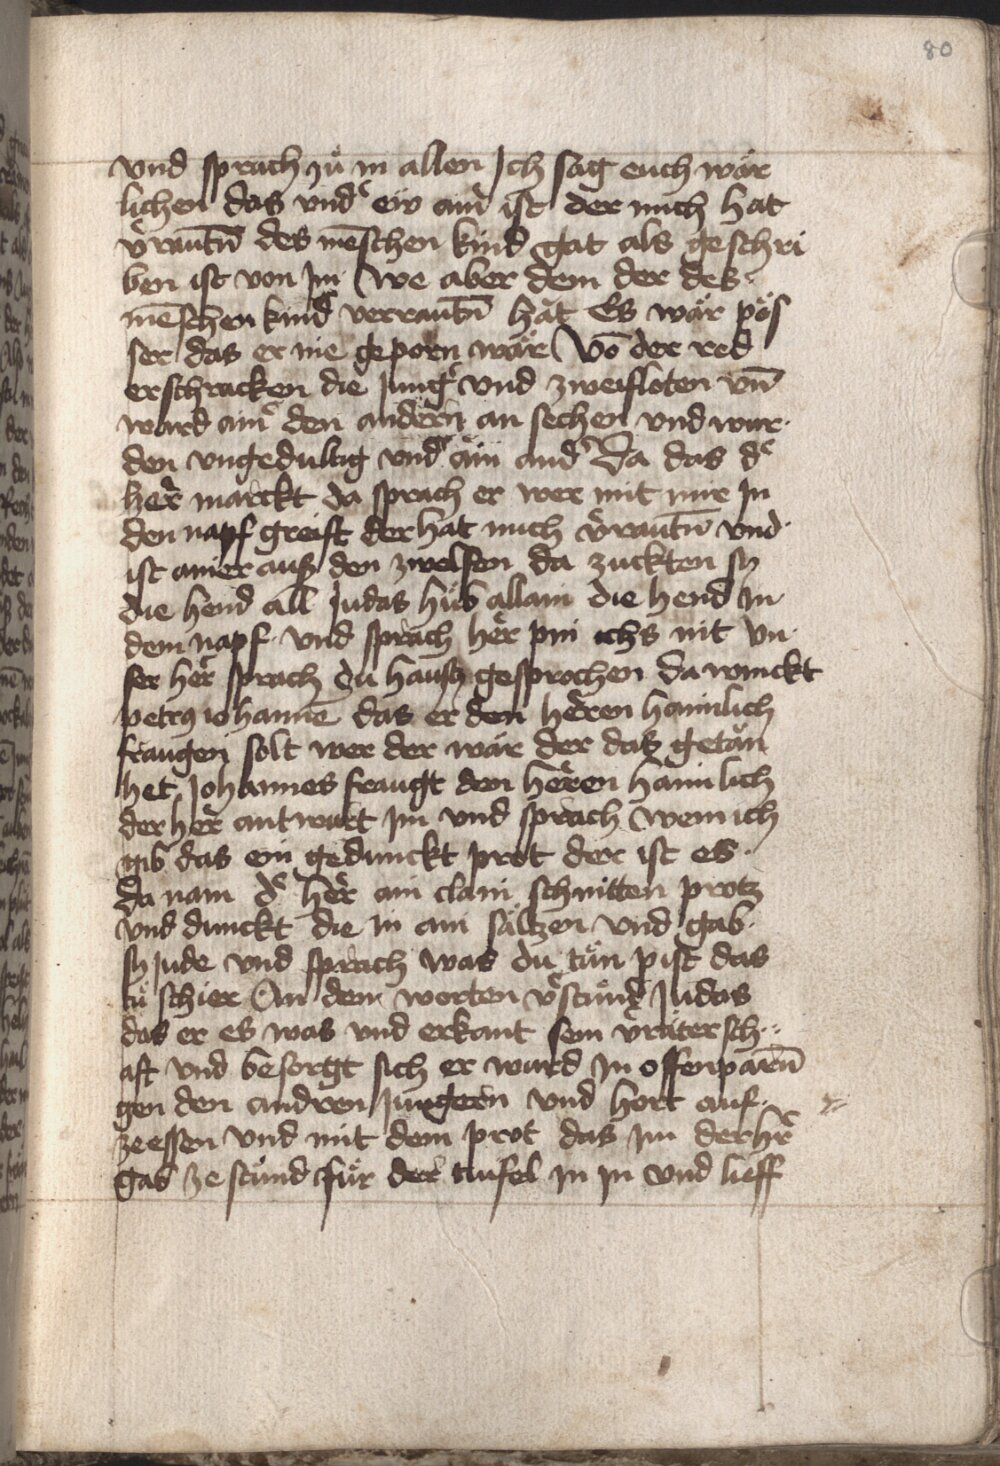 80
vnd sprach zů in allen Jch sag euch wär
lichen das vnd᷑ eẅ ainr ist der mich hat
v᷑rautn̄ des mēschen kind gat als geschri
ben ist von Jm We aber dem der des
mēschen kind verrautn̄ hät Es wär pös
ser das er nie geporn wär Vō der red
erschracken die Jung᷑ vnd zweifloten vn̄
ward ain᷑ den andern an sechen vnd wur
den vngedultig vnd᷑ ain and᷑ Da das d᷑
her marckt da sprach er wer mit mir Jn
den napf greift der hat mich v᷑rautn̄ vnd
ist ainer auß den zwelfen da zuckten sy
die hend all Judas hůb allain die hend Jn
dem napf vnd sprach her pin ichs nit vn
ser her sprach du hausz gesprochen da winckt
petrꝯ iohanne das er den heren haimlich
fraugen solt wer der wär der daß getän
het Johannes fraugt den heren haimlich
der her antwurt Jm vnd sprach wem ich
gib das ein gedunckt prot der ist es
da nam d᷑ her ain clain schnitten protz
vnd dunckt die in ain sältzen vnd gab
sy Jude vnd sprach was du tůn pist das
tů schier An dem worten v᷑stůnd Judas
das er es was vnd erkant sein v᷑räter sch
aft vnd besorgt sich er wurd Jn offenparn̄
gen den andren Jungern vnd hort auf
ze essen vnd mit dem prot das Jm der hr᷑
gab ze stund für der tiufel in in vnd lieff